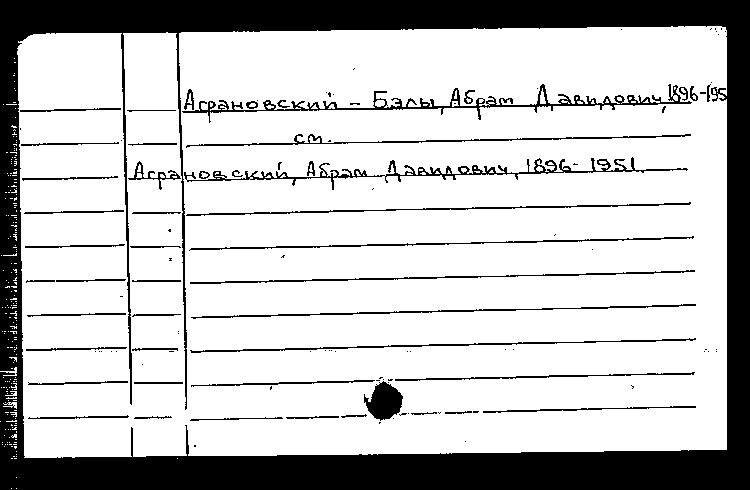 Аграновский - Бэлы, Абрам Давидович, 1896-195
см.
Аграновский, Абрам Давидович, 1896-1951.